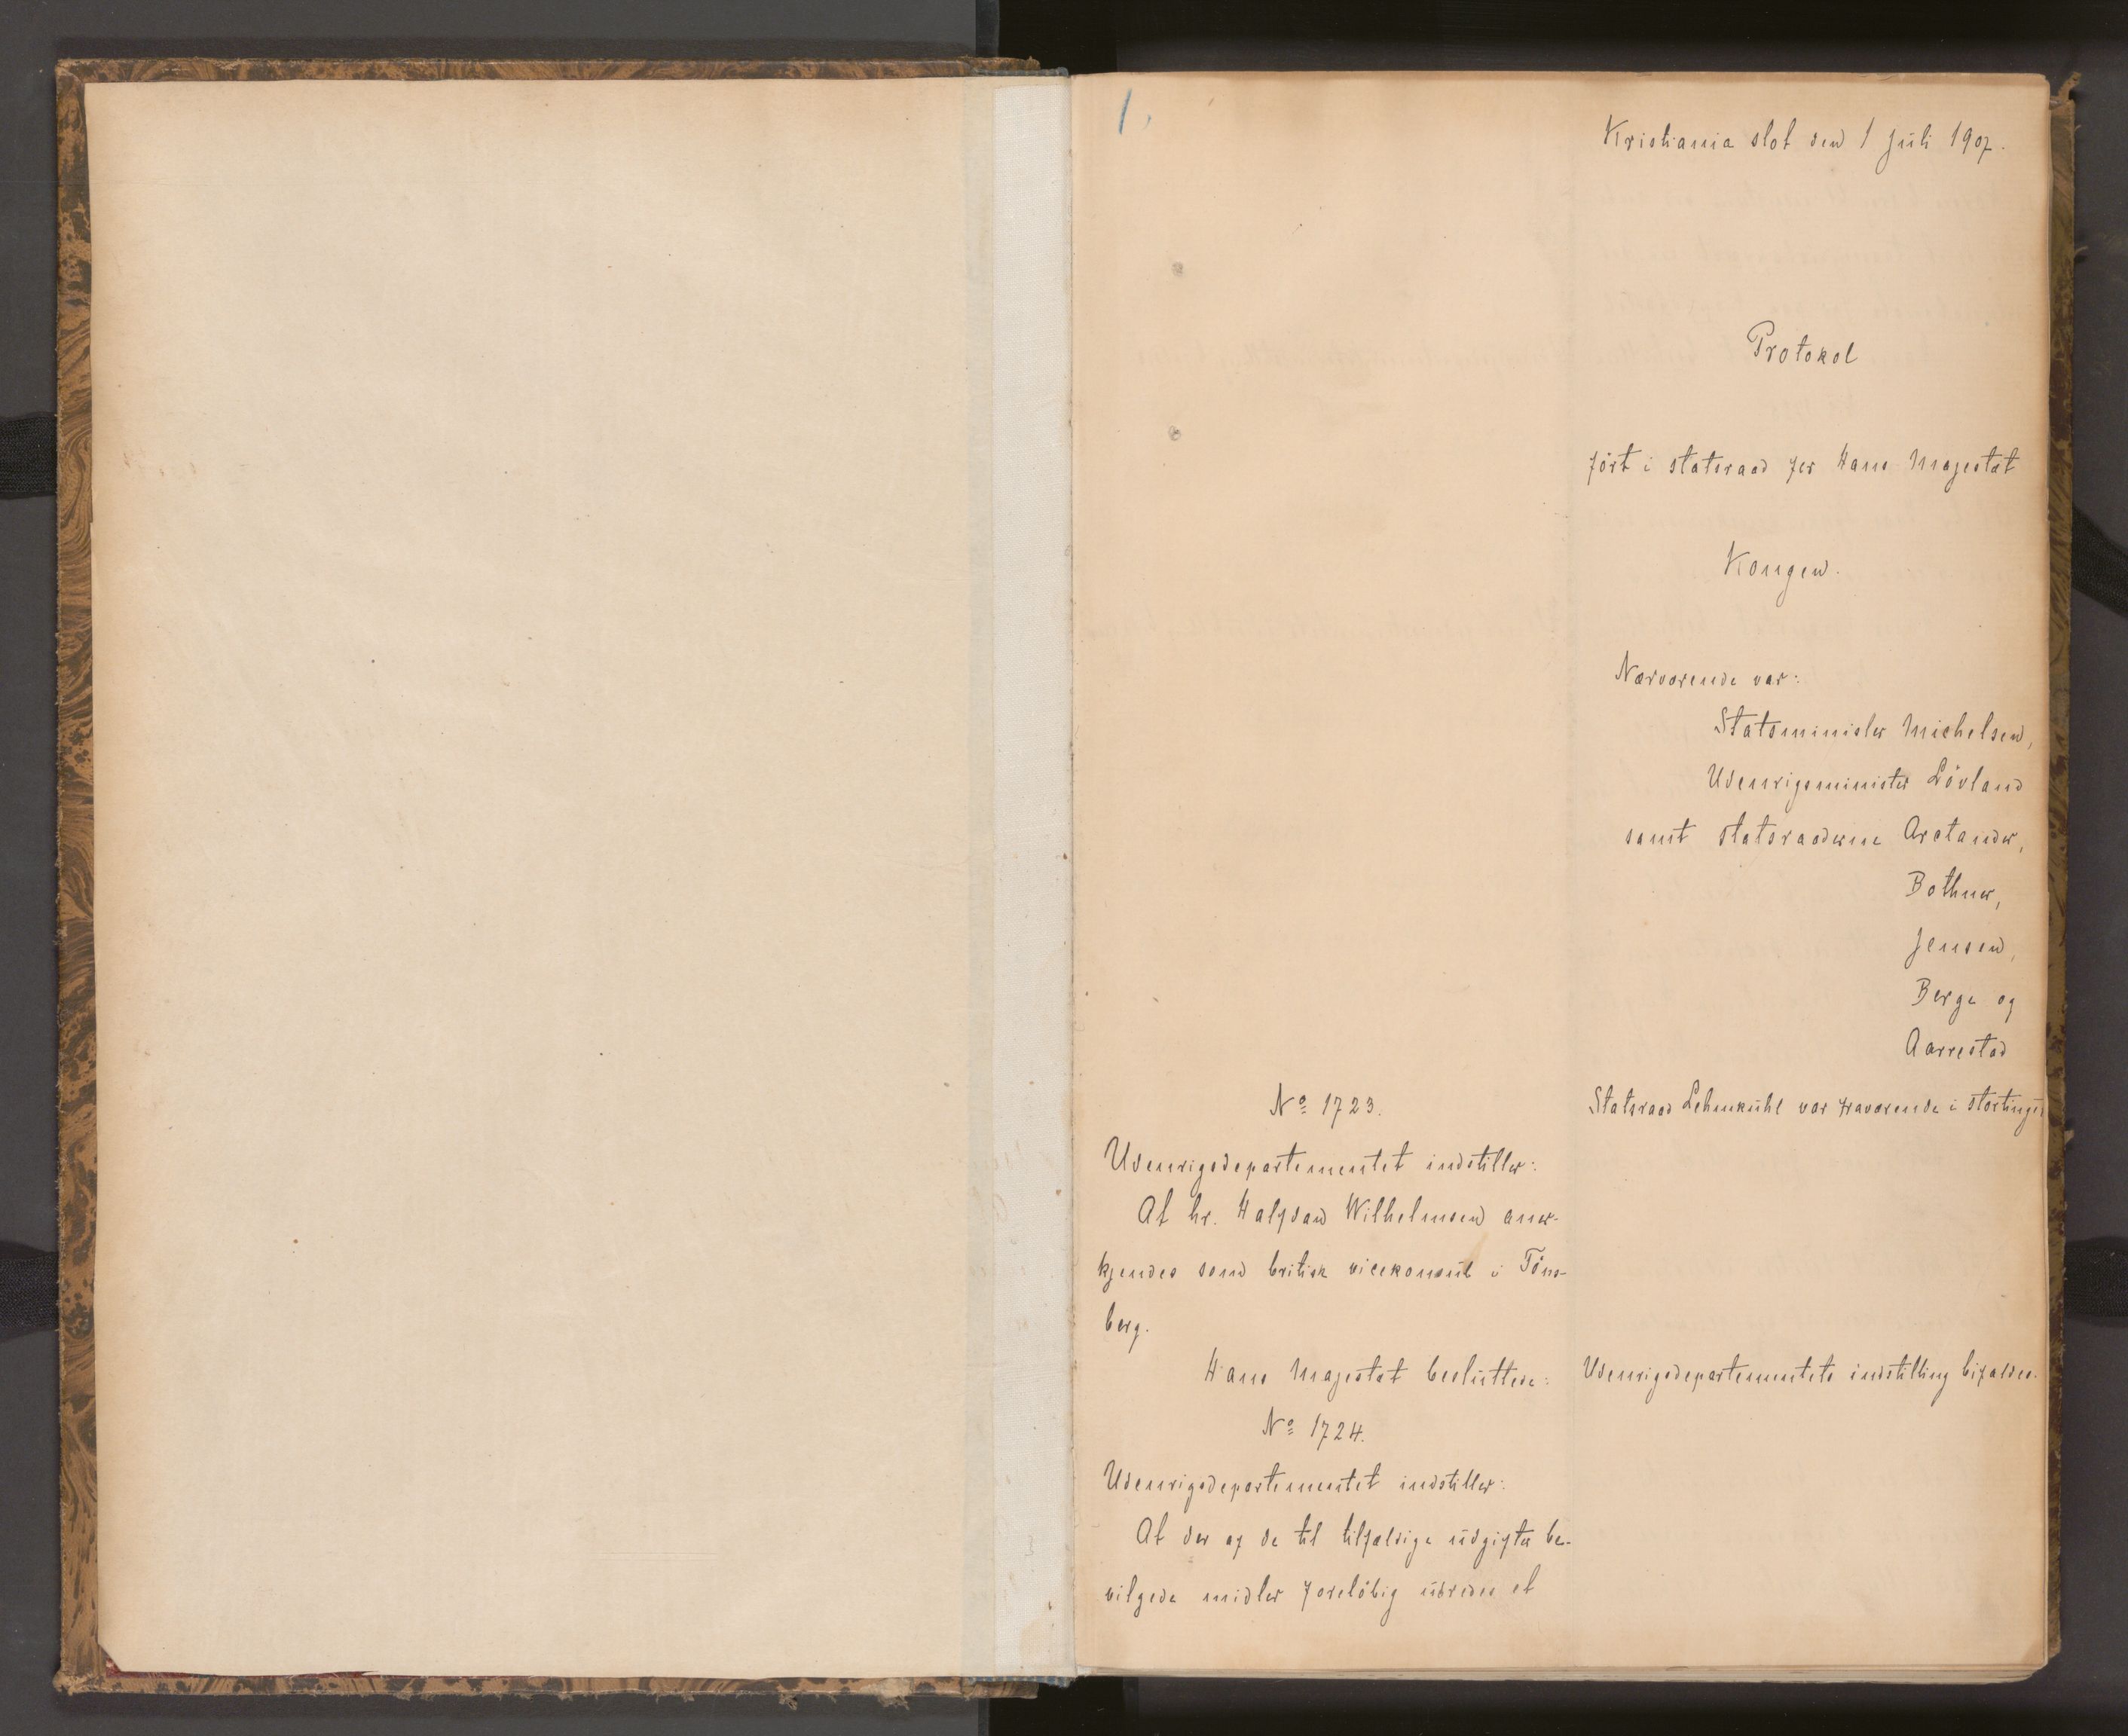 1.
Kristiania slot den 1 juli 1907.
Protokol
ført i statsraad for Hans Majestæt
Kongen.
Nærværende var:
Statsminister Michelsen,
Udenrigsminister Løvland
samt statsraaderne Arctander,
Bothner,
Jensen,
Berge og
Aarrestad
Statsraad Lehmkuhl var fraværende i stortinget
No 1723.
Udenrigsdepartementet indstiller:
At hr. Halfdan Wilhelmsen aner-
kjendes som britisk vicekonsul i Tøns-
berg.
Hans Majestæt besluttede:
Udenrigsdepartementets indstilling bifaldes.
No 1724.
Udenrigsdepartementet indstiller:
At der af de til tilfældige udgifter be-
vilgede midler foreløbig udredes et